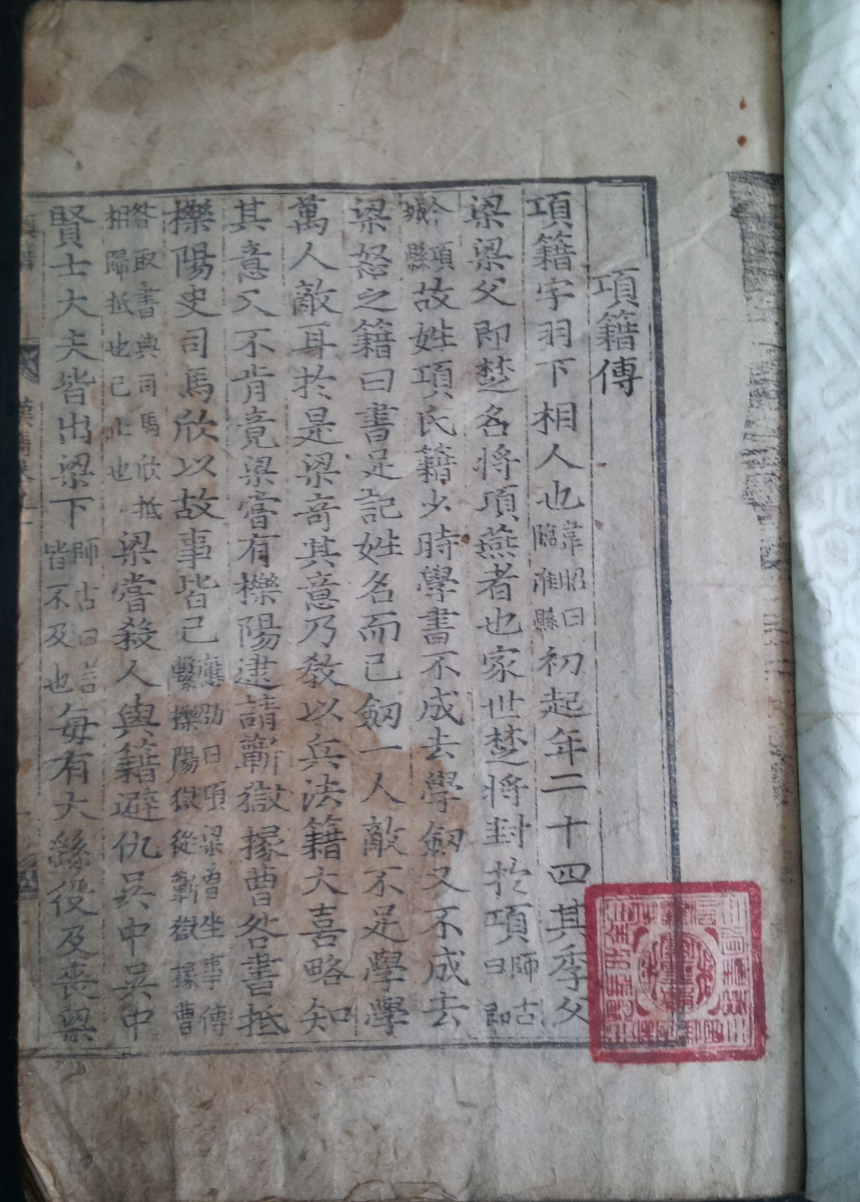 項籍傳
項籍字羽下相人也韋昭曰臨淮縣初起年二十四其季父
梁梁父即楚名將項燕者也家世楚將封於項師古曰即
今項城縣故姓項氏籍少時學書不成去學劒又不成去
梁怒之籍曰書足記姓名而已劒一人敵不足學學
萬人敵耳於是梁奇其意乃教以兵法籍大喜略知
其意又不肯竟梁嘗有櫟陽逮請蘄獄掾曹咎書抵
櫟陽史司馬欣以故事皆已應劭曰項梁曾坐事傳繫櫟陽獄從蘄獄掾曹
咎取書與司馬欣抵相歸抵也已止也梁嘗殺人與籍避仇吳中吳中
賢士大夫皆出梁下師古曰言皆不及也每有大繇役及喪梁